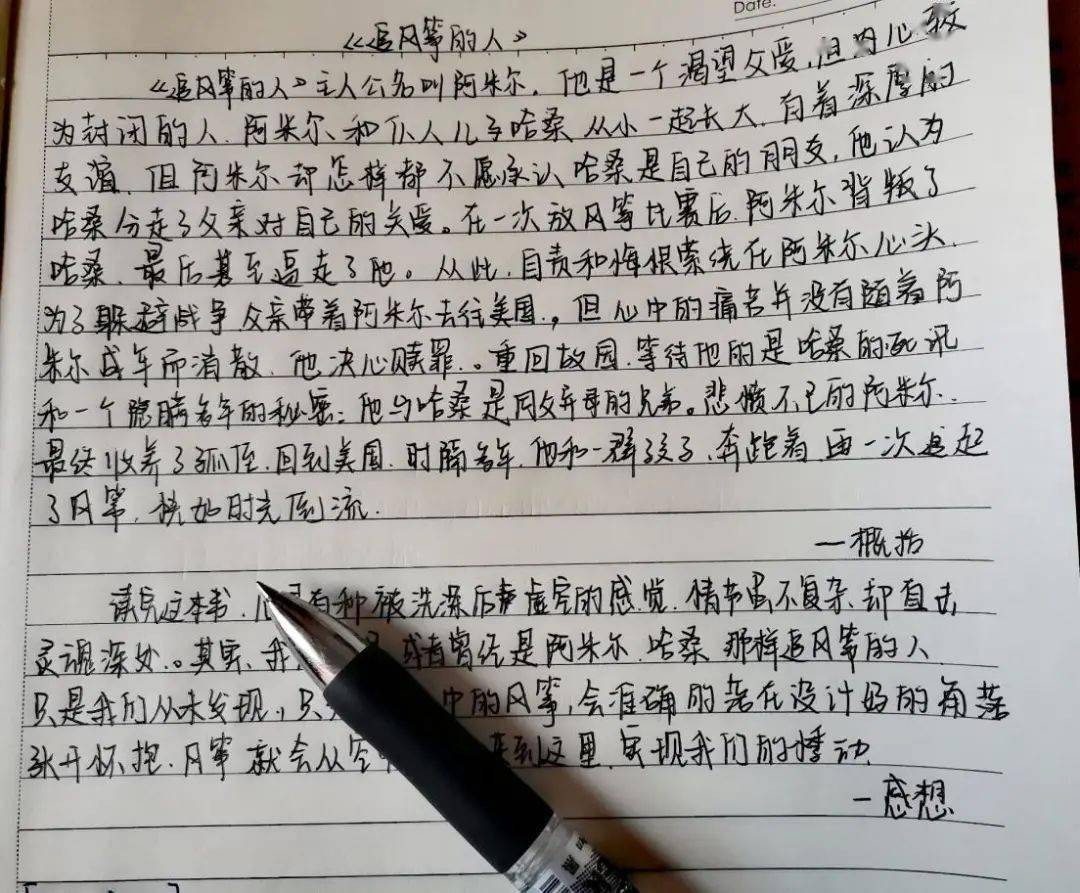 Date:
《追风筝的人》
《追风筝的人》主人公名叫阿米尔．他是一个渴望父爱，但内心较
为封闭的人．阿米尔和仆人儿子哈桑从小一起长大．有着深厚的
友谊．但阿米尔却怎样都不愿承认哈桑是自己的朋友，他认为
哈桑分走了父亲对自己的关爱。在一次放风筝比赛后．阿米尔背叛了
哈桑．最后甚至逼走了他。从此．自责和悔恨萦绕在阿米尔心头．
为了躲避战争父亲带着阿米尔去往美国．，但心中的痛苦并没有随着阿
米尔成年而消散．他决心赎罪．。重回故园．等待他的是哈桑的死讯
和一个隐瞒多年的秘密：他与哈桑是同父异母的兄弟。悲愤不已的阿米尔．
最终收养了孤侄．回到美国．时隔多年．他和一群孩子．奔跑着．再一次追起
了风筝．恍如时光倒流．
—概括
读完这本书．有种被洗涤后虚空的感觉．情节虽不复杂却直击
灵魂深处．。其实．我 或者曾经是阿米尔．哈桑那样追风筝的人．
只是我们从未发现．，只 中的风筝，会准确的落在设计好的角落
张开怀抱．风筝就会从空 来到这里．实现我们的悸动．
—感想